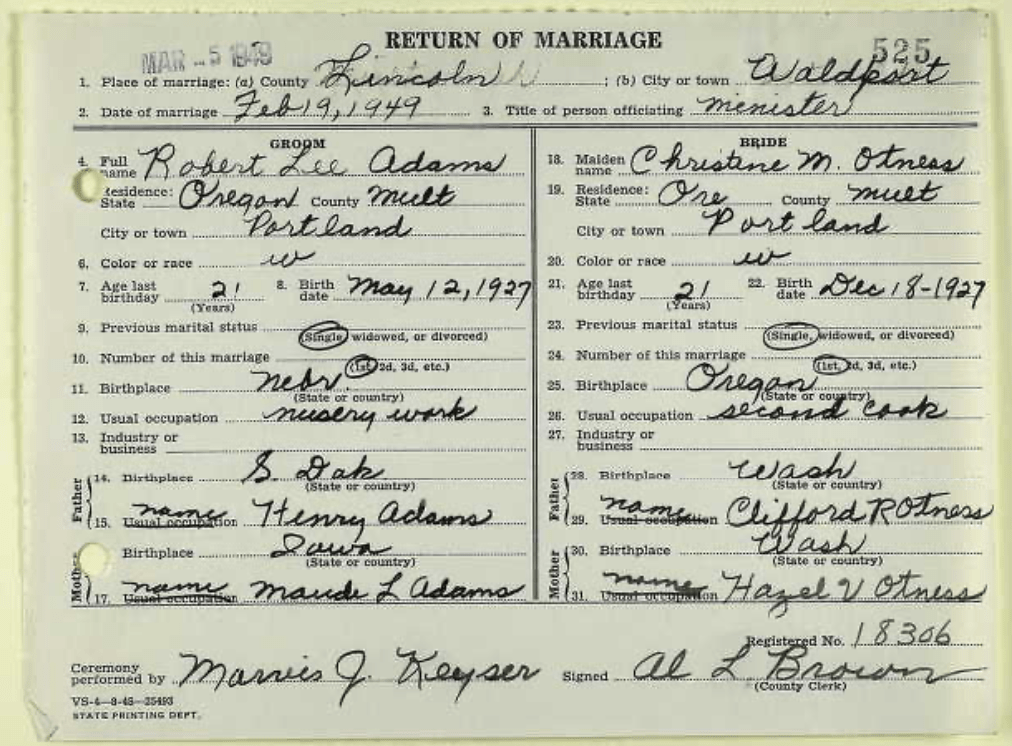 MAR -5 1949
RETURN OF MARRIAGE
525
1. Place of marriage: (a) County Lincoln ; (b) City or town Waldport
2. Date of marriage Feb 19, 1949 3. Title of person officiating menister
GROOM
4. Full name Robert Lee Adams
Residence: State Oregon County Mult
City or town Portland
6. Color or race w
7. Age last birthday 21 (Years) 8. Birth date May 12, 1927
9. Previous marital status (Single, widowed, or divorced)
10. Number of this marriage (1st, 2d, 3d, etc.)
11. Birthplace Nebr. (State or country)
12. Usual occupation nusery work
13. Industry or business
Father
14. Birthplace S. Dak (State or country)
15. Usual occupation name Henry Adams
Mother
Birthplace Iowa (State or country)
17. Usual occupation name Maude L Adams
BRIDE
18. Maiden name Christine M. Otness
19. Residence: State Ore County Mult
City or town Portland
20. Color or race w
21. Age last birthday 21 (Years) 22. Birth date Dec 18-1927
23. Previous marital status (Single, widowed, or divorced)
24. Number of this marriage (1st, 2d, 3d, etc.)
25. Birthplace Oregon (State or country)
26. Usual occupation second cook
27. Industry or business
Father
28. Birthplace Wash (State or country)
29. Usual occupation name Clifford R Otness
Mother
30. Birthplace Wash (State or country)
31. Usual occupation name Hazel V Otness
Registered No. 18306
Ceremony performed by Marvis J. Keyser Signed Al L. Brown
(County Clerk)
VS-4—8-48—35493
STATE PRINTING DEPT.